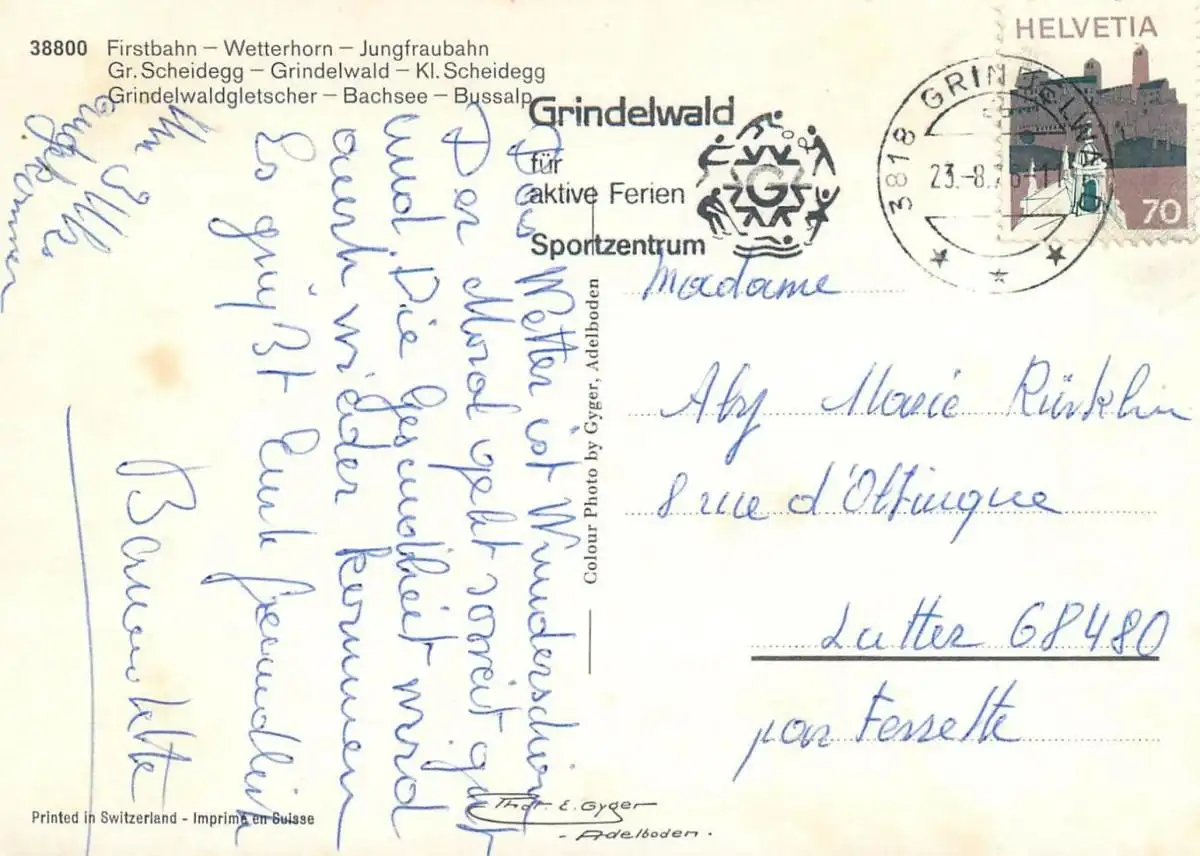 38800 Firstbahn – Wetterhorn – Jungfraubahn
Gr. Scheidegg – Grindelwald – Kl. Scheidegg
Grindelwaldgletscher – Bachsee – Bussalp
Grindelwald
für
aktive Ferien
Sportzentrum
G
3818 GRINDELWALD
23.-8.76-11
HELVETIA
70
Das Wetter ist Wunderschön
Der Moral geht soweit gut
und Die Gesundheit wird
auch wieder kommen
Es grüßt Euch freundlich
Bernadette
angekommen
Madame
Aby Marie Rürklin
8 rue d'Oltingue
Lutter 68480
par Ferrette
Colour Photo by Gyger, Adelboden
Printed in Switzerland - Imprimé en Suisse
Thor E. Gyger
- Adelboden.